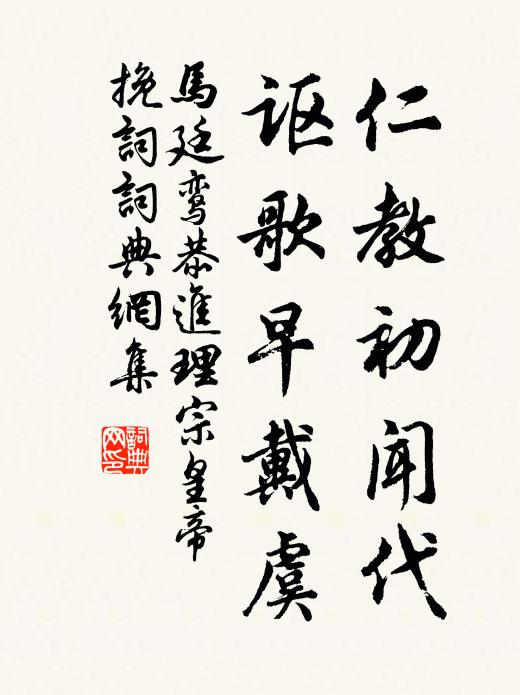 仁教初闻代
讴歌早戴虞
馬廷鸾恭進理宗皇帝
挽詞詞典網集
詞典网印